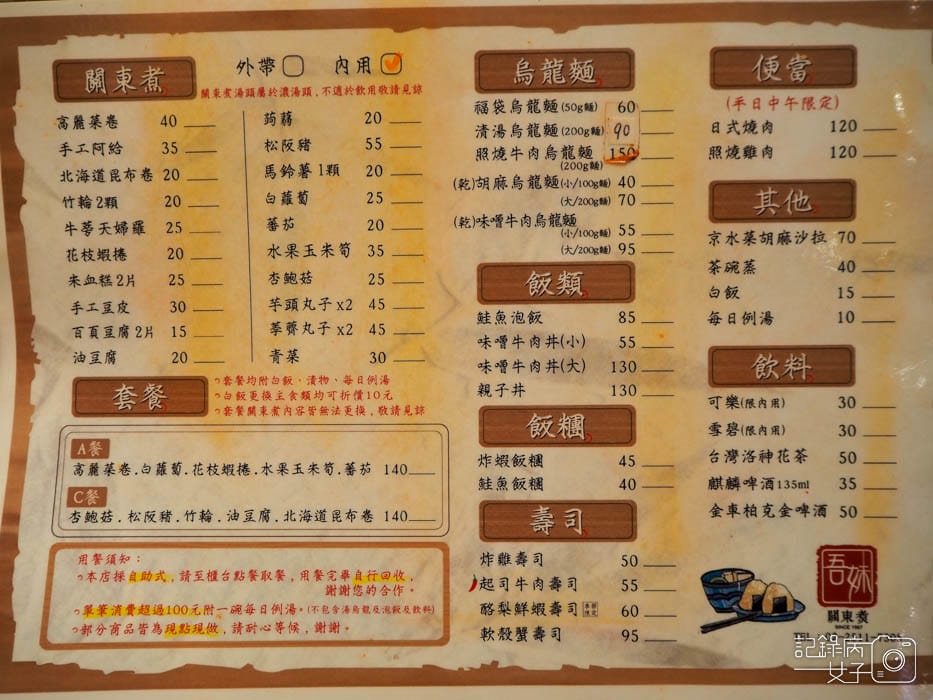 關東煮
外帶 內用
關東煮湯頭屬於濃湯頭，不適於飲用敬請見諒
高麗菜卷 40
手工阿給 35
北海道昆布卷 20
竹輪2顆 20
牛蒡天婦羅 25
花枝蝦捲 20
朱血糕2片 25
手工豆皮 30
百頁豆腐2片 15
油豆腐 20
蒟蒻 20
松阪豬 55
馬鈴薯1顆 20
白蘿蔔 25
蕃茄 20
水果玉米筍 35
杏鮑菇 25
芋頭丸子x2 45
荸薺丸子x2 45
青菜 30
套餐
套餐均附白飯、漬物、每日例湯
白飯更換主食類均可折價10元
套餐關東煮內容皆無法更換，敬請見諒
A餐
高麗菜卷.白蘿蔔.花枝蝦捲.水果玉米筍.蕃茄 140
C餐
杏鮑菇.松阪豬.竹輪.油豆腐.北海道昆布卷 140
用餐須知：
本店採自助式，請至櫃台點餐取餐，用餐完畢自行回收，
謝謝您的合作。
單筆消費超過100元附一碗每日例湯。(不包含湯烏龍及泡飯及飲料)
部分商品皆為現點現做，請耐心等候，謝謝。
烏龍麵
福袋烏龍麵(50g麵) 60
清湯烏龍麵(200g麵) 90
照燒牛肉烏龍麵 150
(200g麵)
(乾)胡麻烏龍麵(小/100g麵) 40
(大/200g麵) 70
(乾)味噌牛肉烏龍麵
(小/100g麵) 55
(大/200g麵) 95
飯類
鮭魚泡飯 85
味噌牛肉丼(小) 55
味噌牛肉丼(大) 130
親子丼 130
飯糰
炸蝦飯糰 45
鮭魚飯糰 40
壽司
炸雞壽司 50
起司牛肉壽司 55
酪梨鮮蝦壽司 60
軟殼蟹壽司 95
便當
(平日中午限定)
日式燒肉 120
照燒雞肉 120
其他
京水菜胡麻沙拉 70
茶碗蒸 40
白飯 15
每日例湯 10
飲料
可樂(限內用) 30
雪碧(限內用) 30
台灣洛神花茶 50
麒麟啤酒135ml 35
金車柏克金啤酒 50
吾妹
關東煮
SINCE 1987
記錄病
女子